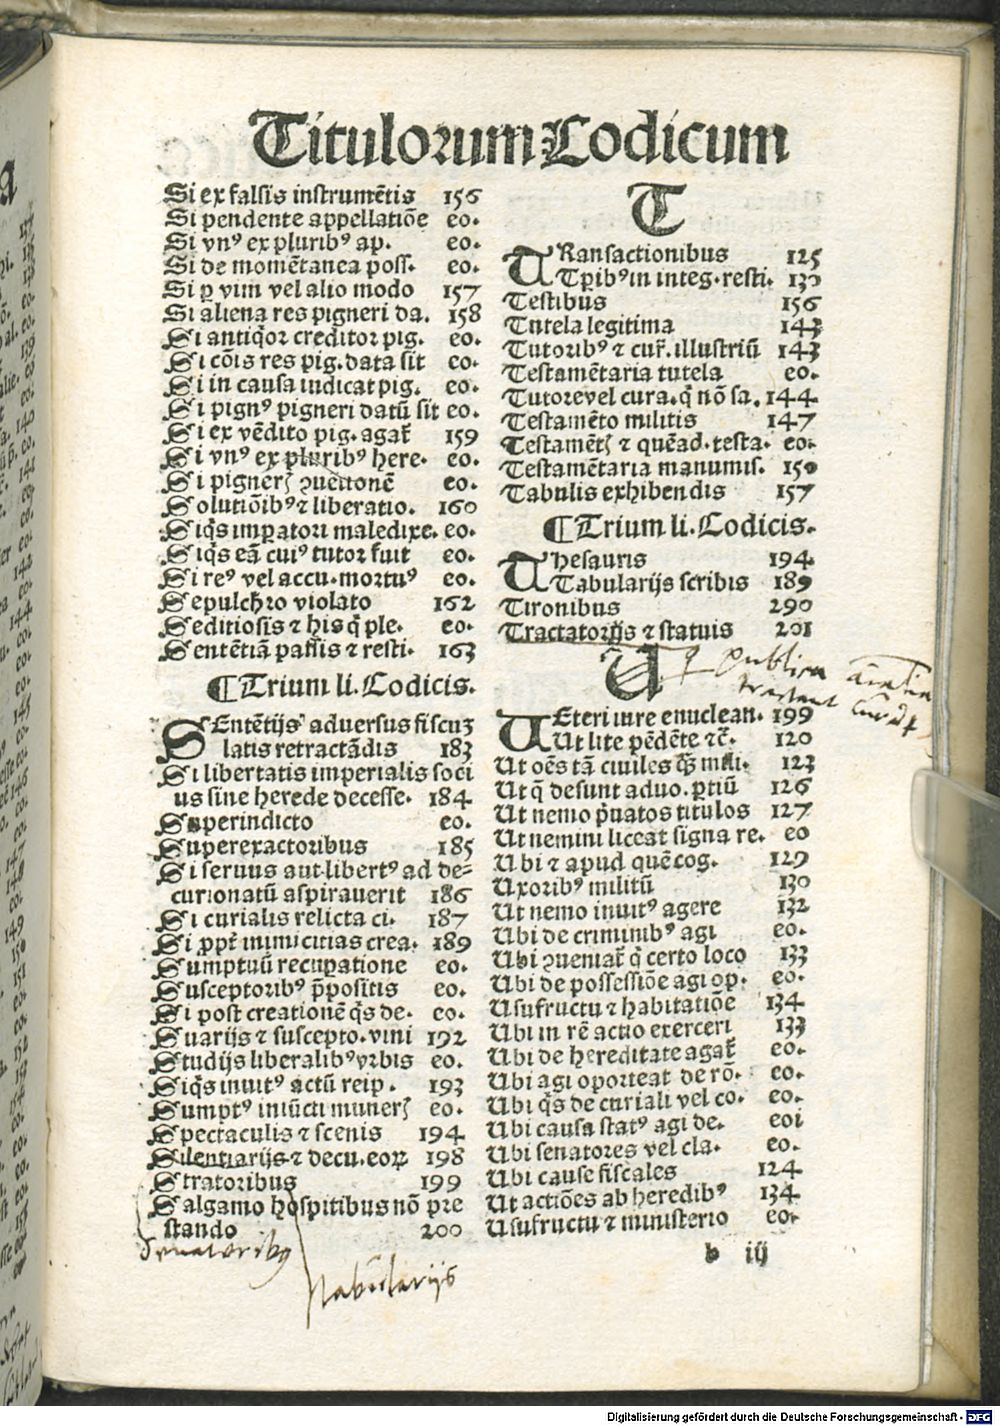 Titulorum Codicum
Si ex falsis instrumētis 156
Si pendente appellatiōe eo.
Si vnꝰ ex pluribꝰ ap. eo.
Si de momētanea poss. eo.
Si ꝑ vim vel alio modo 157
Si aliena res pigneri da. 158
Si antiq̄or creditor pig. eo.
Si cōis res pig. data sit eo.
Si in causa iudicat pig. eo.
Si pignꝰ pigneri datū sit eo.
Si ex vēdito pig. agat̄ 159
Si vnꝰ ex pluribꝰ here. eo.
Si pigneꝝ ꝯuētionē eo.
Solutiōibꝰ ⁊ liberatio. 160
Siq̄s imꝑatori maledixe. eo.
Siq̄s eā cuiꝰ tutor fuit eo.
Si reꝰ vel accu. mortuꝰ eo.
Sepulchro violato 162
Seditiosis ⁊ his q̄ ple. eo.
Sentētiā passis ⁊ resti. 163
¶ Trium li. Codicis.
SEntētijs aduersus fiscuꝫ
latis retractādis 183
Si libertatis imperialis soci
us sine herede decesse. 184
Superindicto eo.
Superexactoribus 185
Si seruus aut libertꝰ ad de⸗
curionatū aspirauerit 186
Si curialis relicta ci. 187
Si ꝓpt̄ inimicitias crea. 189
Sumptuū recuꝑatione eo.
Susceptoribꝰ p̄positis eo.
Si post creationē q̄s de. eo.
Suarijs ⁊ suscepto. vini 192
Studijs liberalibꝰ vrbis eo.
Siq̄s inuitꝰ actū reip. 193
Sumptꝰ iniūcti muneꝝ eo.
Spectaculis ⁊ scenis 194
Silentiarijs ⁊ decu. eoꝝ 198
Stratoribus 199
Salgamo hospitibus nō pre
stando 200
Senatoribꝰ
Nabulariis
T
TRansactionibus 125
Tꝑibꝰ in integ. resti. 130
Testibus 156
Tutela legitima 143
Tutoribꝰ ⁊ cur̄. illustriū 143
Testamētaria tutela eo.
Tutore vel cura. q̄ nō sa. 144
Testamēto militis 147
Testamētꝭ ⁊ quēad. testa. eo.
Testamētaria manumis. 150
Tabulis exhibendis 157
¶ Trium li. Codicis.
THesauris 194
Tabularijs scribis 189
Tironibus 290
Tractatorijs ⁊ statuis 201
publica
tractant
V
VEteri iure enuclean. 199
Ut lite pēdēte ⁊c̄. 120
Ut oēs tā ciuiles q̄ꝫ mili. 123
Ut q̄ desunt aduo. ꝑtiū 126
Ut nemo p̄uatos titulos 127
Ut nemini liceat signa re. eo
Ubi ⁊ apud quē cog. 129
Uxoribꝰ militū 130
Ut nemo inuitꝰ agere 132
Ubi de criminibꝰ agi eo.
Ubi ꝯueniat̄ q̄ certo loco 133
Ubi de possessiōe agi op. eo.
Usufructu ⁊ habitatiōe 134
Ubi in rē actio exerceri 133
Ubi de hereditate agat̄ eo.
Ubi agi oporteat de rō. eo.
Ubi q̄s de curiali vel co. eo.
Ubi causa statꝰ agi de. eoi
Ubi senatores vel cla. eo.
Ubi cause fiscales 124
Ut actiōes ab heredibꝰ 134
Usufructu ⁊ ministerio eo.
b iij
Digitalisierung gefördert durch die Deutsche Forschungsgemeinschaft - DFG